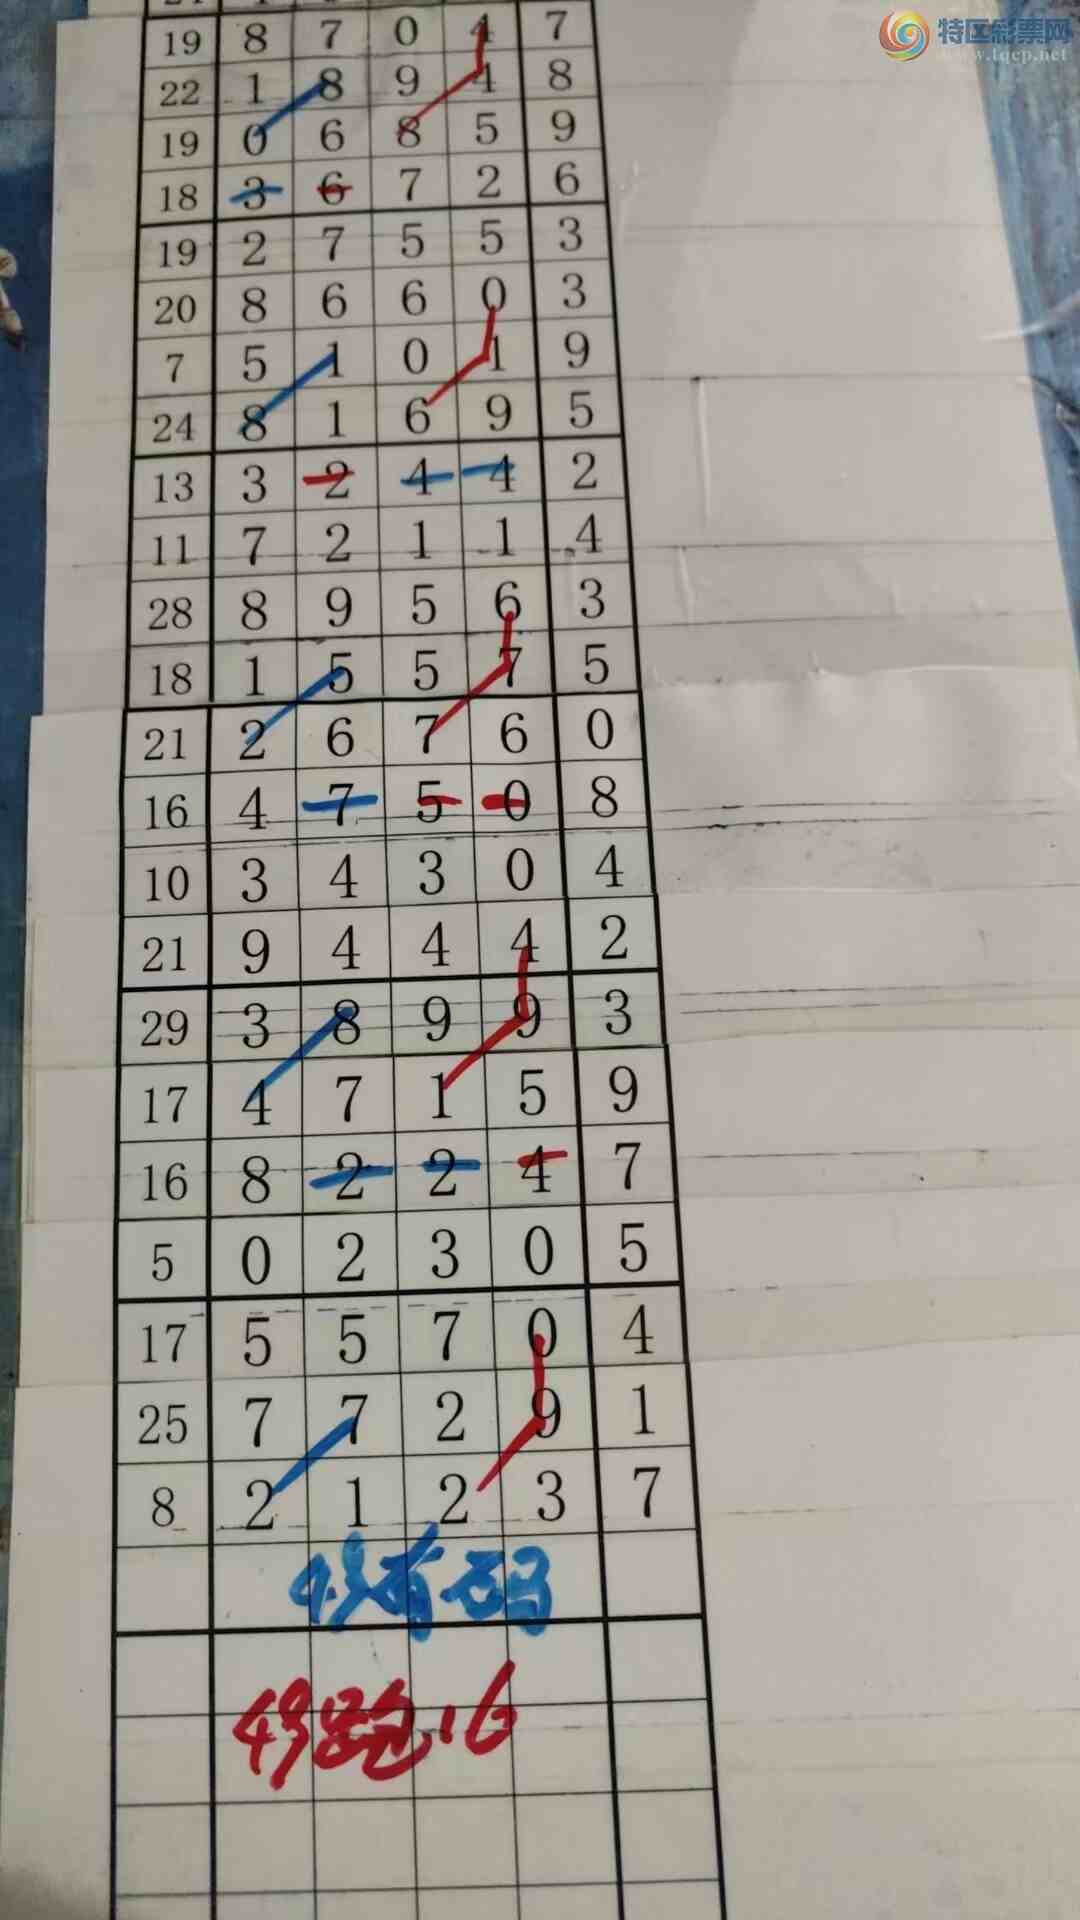 特区彩票网
www.tqcp.net
19 8 7 0 4 7
22 1 8 9 4 8
19 0 6 8 5 9
18 3 6 7 2 6
19 2 7 5 5 3
20 8 6 6 0 3
7 5 1 0 1 9
24 8 1 6 9 5
13 3 2 4 4 2
11 7 2 1 1 4
28 8 9 5 6 3
18 1 5 5 7 5
21 2 6 7 6 0
16 4 7 5 0 8
10 3 4 3 0 4
21 9 4 4 4 2
29 3 8 9 9 3
17 4 7 1 5 9
16 8 2 2 4 7
5 0 2 3 0 5
17 5 5 7 0 4
25 7 7 2 9 1
8 2 1 2 3 7
49有码
49跑16